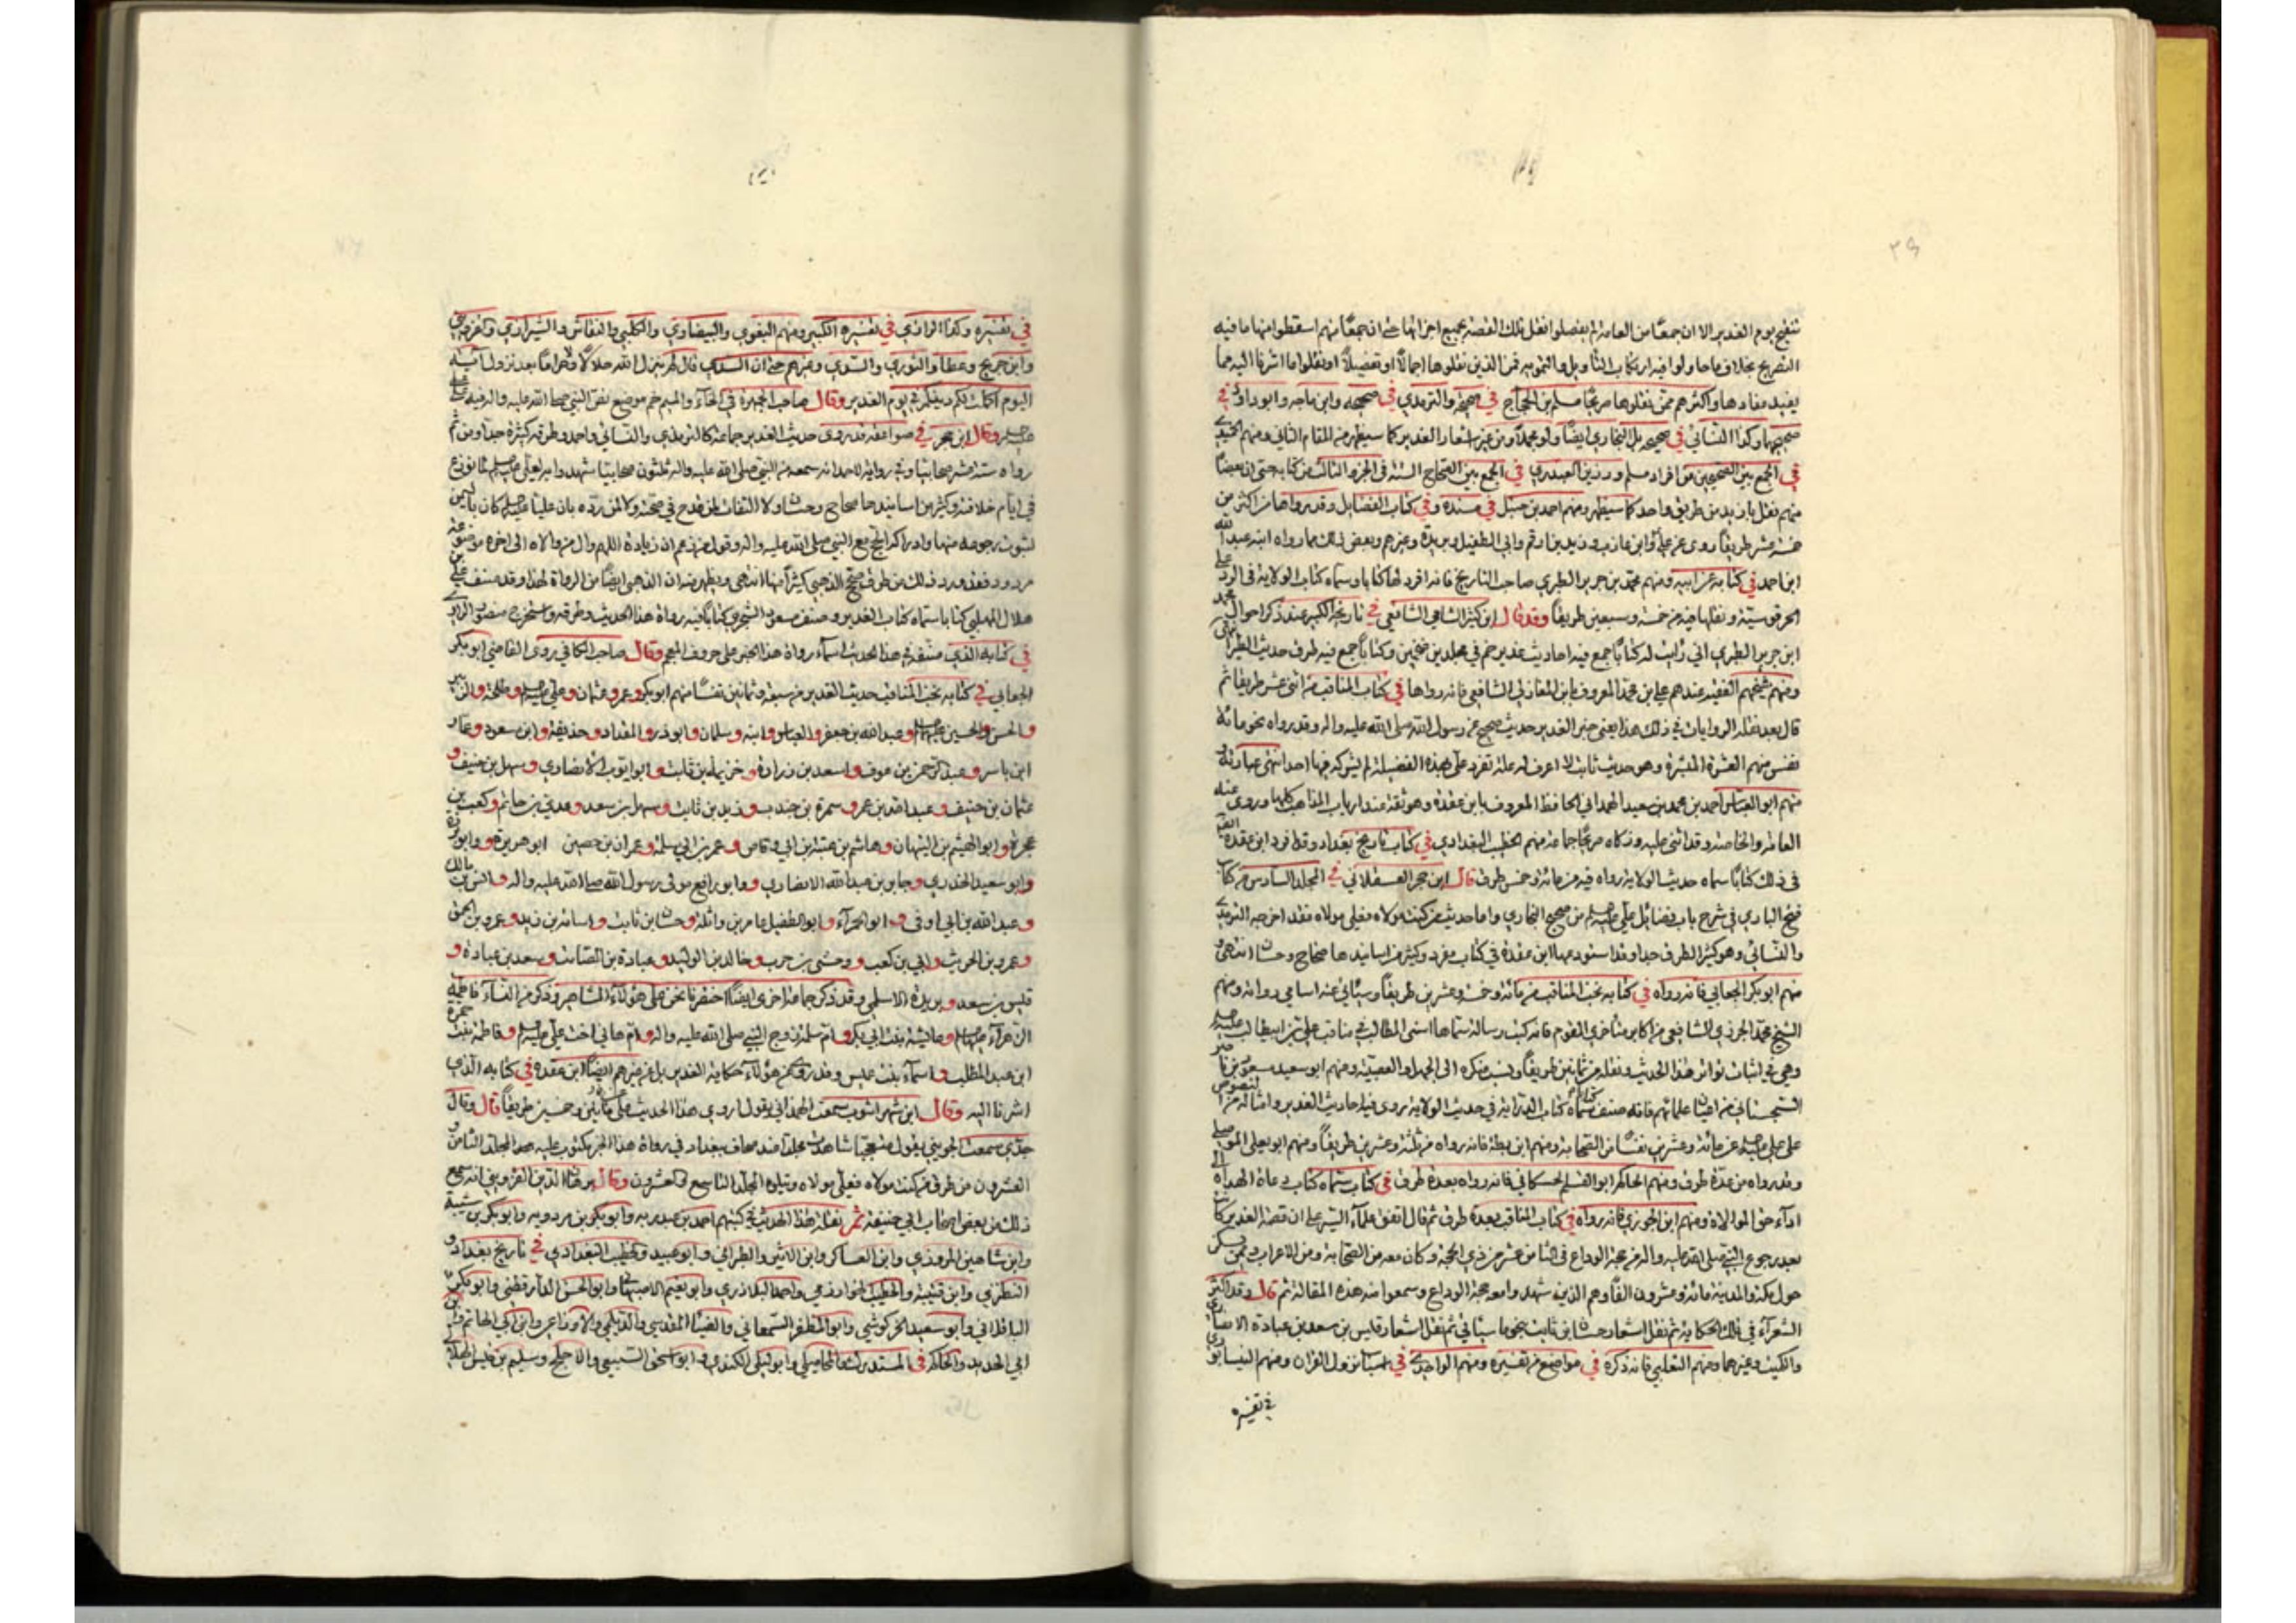 ٣٩
تنقيح يوم الغدير الا ان جمعًا من العامة لم يفصلوا نقل تلك القصة بجميع اجزائها حتى ان جمعًا منهم اسقطوا منها ما فيه
التصريح بخلاف ما حاولوا فيه ارتكاب التأويل والتمويه فمن الذين نقلوها اجمالًا او تفصيلًا او نقلوا ما اشرنا اليه مما
يفيد مفادها واكثرهم ممن نقلوها صريحًا مسلم بن الحجاج في صحيحه والترمذي في صحيحه وابن ماجه وابو داود في
صحيحهما وكذا النسائي في صحيحه بل البخاري ايضًا ولو مجملًا ومن غير اشعار الغدير كما سيظهر في المقام الثاني ومنهم الحميدي
في الجمع بين الصحيحين من افراد مسلم ورزين العبدري في الجمع بين الصحاح الستة في الجزء الثالث من كتابه حتى ان بعضًا
منهم نقل بازيد من طريق واحد كما سيظهر ومنهم احمد بن حنبل في مسنده وفي كتاب الفضايل وقد رواها من اكثر من
خمسة عشر طريقًا روى عن علي وابن عازب وزيد بن ارقم وابي الطفيل وبريدة وغيرهم وبعض ذلك مما رواه ابنه عبد الله
ابن احمد في كتابه عن ابيه ومنهم محمد بن جرير الطبري صاحب التاريخ فانه افرد لها كتابا وسماه كتاب الولاية في الرد على
الحرقوسية ونقلها فيه من خمسة وسبعين طريقًا وقد قال ابن كثير الشامي الشافعي في تاريخه الكبير عند ذكر احوال محمد
ابن جرير الطبري اني رايت له كتابًا جمع فيه احاديث غدير خم في مجلدين ضخمين وكتابًا جمع فيه طرق حديث الطير
ومنهم شيخهم الفقيه عندهم علي بن محمد المعروف بابن المغازلي الشافعي فانه رواها في كتاب المناقب من اثنى عشر طريقا ثم
قال بعد نقله الروايات في ذلك هذا يعني خبر الغدير حديث صحيح عن رسول الله صلى الله عليه واله وقد رواه نحو مائة
نفس منهم العشرة المبشرة وهو حديث ثابت لا اعرف له علة تفرد علي بهذه الفضيلة لم يشركه فيها احد انتهى عبارته
منهم ابو العباس احمد بن محمد بن سعيد الهمداني الحافظ المعروف بابن عقدة وهو ثقة عند ارباب المذاهب كلها وروى عنه
العامة والخاصة وقد اثنى عليه وزكاه صريحًا جماعة منهم الخطيب البغدادي في كتاب تاريخ بغداد وقد افرد ابن عقدة
في ذلك كتابًا سماه حديث الولاية رواه فيه من مائة وخمس طرق قال ابن حجر العسقلاني في المجلد السادس من كتاب
فتح الباري في شرح باب فضائل علي من صحيح البخاري واما حديث من كنت مولاه فعلي مولاه فقد اخرجه الترمذي
والنسائي وهو كثير الطرق جدا وقد استوعبها ابن عقدة في كتاب مفرد وكثير من اسانيدها صحاح وحسان انتهى
منهم ابو بكر الجعابي فانه رواه في كتابه نخب المناقب من مائة وخمسة وعشرين طريقًا وسيأتي عنه اسامي رواته ومنهم
الشيخ محمد الجزري الشافعي من اكابر متأخري القوم فانه كتب رسالة سماها اسنى المطالب في مناقب علي بن ابيطالب
وهي في اثبات تواتر هذا الحديث ونقله من ثمانين طريقًا ونسب منكره الى الجهل والعصبية ومنهم ابو سعيد مسعود بن ناصر
السجستاني من اعيان علمائهم فانه صنف كتابًا سماه كتاب الدراية في حديث الولاية يروي فيه احاديث الغدير وامثاله من النصوص
على علي عن مائة وعشرين نفسًا من الصحابة ومنهم ابن بطة فانه رواه من ثلثة وعشرين طريقًا ومنهم ابو يعلى الموصلي
وقد رواه من عدة طرق ومنهم الحاكم ابو القسم الحسكاني فانه رواه بعدة طرق في كتاب سماه كتاب دعاة الهداة الى
اداء حق الموالاة ومنهم ابن الجوزي فانه رواه في كتاب المناقب بعدة طرق ثم قال اتفق علماء السير على ان قصة الغدير كانت
بعد رجوع النبي صلى الله عليه واله من حجة الوداع في الثامن عشر من ذي الحجة وكان معه من الصحابة ومن الاعراب وممن يسكن
حول مكة والمدينة مائة وعشرون الفًا وهم الذين شهدوا معه حجة الوداع وسمعوا منه هذه المقالة ثم قال وقد اكثر
الشعراء في تلك الحكاية ثم نقل اشعار حسان بن ثابت بنحو ما سيأتي ثم نقل اشعار قيس بن سعد بن عبادة الانصاري
والكميت وغيرهما ومنهم الثعلبي فانه ذكره في مواضع من تفسيره ومنهم الواحدي في اسباب نزول القران ومنهم النيسابوري
في تفسيره
في تفسيره وكذا الرازي في تفسيره الكبير ومنهم البغوي والبيضاوي والكلبي والنقاش والشيرازي
وابن جريج وعطا والثوري والسدي وغيرهم حتى ان السدي قال لم ينزل الله حلالًا ولا حرامًا بعد نزول آية
اليوم اكملت لكم دينكم في يوم الغدير وقال صاحب الجمهرة في الخاء والميم خم موضع نص النبي صلى الله عليه واله فيه على علي
وقال ابن حجر في صواعقه قد روى حديث الغدير جماعة كالترمذي والنسائي واحمد وطرقه كثيرة جدًا ومن ثم
رواه ستة عشر صحابيًا وفي رواية لاحمد انه سمعه من النبي صلى الله عليه واله ثلثون صحابيا شهدوا به لعلي لما نوزع
في ايام خلافته وكثير من اسانيدها صحاح وحسان ولا التفات لمن قدح في صحته ولا لمن رده بان عليًا كان باليمن
لثبوت رجوعه منها وادراكه الحج مع النبي صلى الله عليه واله وقول من زعم ان زيادة اللهم وال من والاه الى اخره موضوعة
مردود فقد ورد ذلك من طرق صحح الذهبي كثيرًا منها انتهى ويظهر منه ان الذهبي ايضًا من الرواة لهذا وقد صنف علي بن
هلال المهلبي كتابا سماه كتاب الغدير وصنف مسعود الشجري كتابًا فيه رواة هذا الحديث وطرقه واستخرج منصور الرازي
في كتابه الذي صنفه في هذا الحديث اسماء رواة هذا الخبر على حروف المعجم وقال صاحب الكافي روى القاضي ابو بكر
الجعابي في كتابه نخب المناقب حديث الغدير من سبعة وثمانين نفسًا منهم ابو بكر وعمر وعثمان وعلي وطلحة والزبير
والحسن والحسين وعبد الله بن جعفر والعباس وابنه وسلمان وابو ذر والمقداد وحذيفة وابن مسعود وعمار
ابن ياسر وعبد الرحمن بن عوف واسعد بن زرارة وخزيمة بن ثابت وابو ايوب الانصاري وسهل بن حنيف و
عثمان بن حنيف وعبد الله بن عمر وسمرة بن جندب وزيد بن ثابت وسهل بن سعد وعدي بن حاتم وكعب بن
عجرة وابو الهيثم بن التيهان وهاشم بن عتبة بن ابي وقاص وعمر بن ابي سلمة وعمران بن حصين ابو هريرة وابو برزة
وابو سعيد الخدري وجابر بن عبد الله الانصاري وابو رافع مولى رسول الله صلى الله عليه واله وانس بن مالك
وعبد الله بن ابي اوفى وابو الحمراء وابو الطفيل عامر بن واثلة وحسان بن ثابت واسامة بن زيد وعمرو بن الحمق
وعمرو بن الحريث وابي بن كعب ووحشي بن حرب وخالد بن الوليد وعبادة بن الصامت وسعد بن عبادة و
قيس بن سعد وبريدة الاسلمي وقد ذكر جماعة اخرى ايضًا اختصرنا نحن على هؤلاء المشاهير وذكر من النساء فاطمة
الزهراء وعائشة بنت ابي بكر وام سلمة زوج النبي صلى الله عليه واله وام هاني اخت علي وفاطمة بنت حمزة
ابن عبد المطلب واسماء بنت عميس وقد روى عن هؤلاء حكاية الغدير بل عن غيرهم ايضًا ابن عقدة في كتابه الذي
اشرنا اليه وقال ابن شهراشوب سمعت الهمداني يقول اروي هذا الحديث على مائتين وخمسين طريقًا قال وقال
جدي سمعت الجويني يقول متعجبا شاهدت مجلدًا عند صحاف ببغداد في رواة هذا الخبر مكتوب عليه هذا المجلد الثامن و
العشرون من طرق من كنت مولاه فعلي مولاه ويتلوه المجلد التاسع والعشرون وقال برهان الدين القزويني انه سمع
ذلك من بعض اصحاب ابي حنيفة ثم نقلة هذا الحديث في كتبهم احمد بن عبد ربه وابو بكر بن مردويه وابو بكر بن شيبة
وابن شاهين المروذي وابن العساكر وابن الاثير والطبراني وابو عبيد والخطيب البغدادي في تاريخ بغداد و
النطنزي وابن قتيبة والخطيب الخوارزمي واحمد البلاذري وابو نعيم الاصبهاني وابو الحسن الدارقطني وابو بكر
الباقلاني وابو سعيد الخركوشي وابو المظفر السمعاني والمقدسي والديلمي والاوزاعي وابن ابي الحاتم وابن
ابي الحديد والحاكم في المستدرك والكندي وابو اسحق السبيعي والاجلح وسليم بن قيس الهلالي